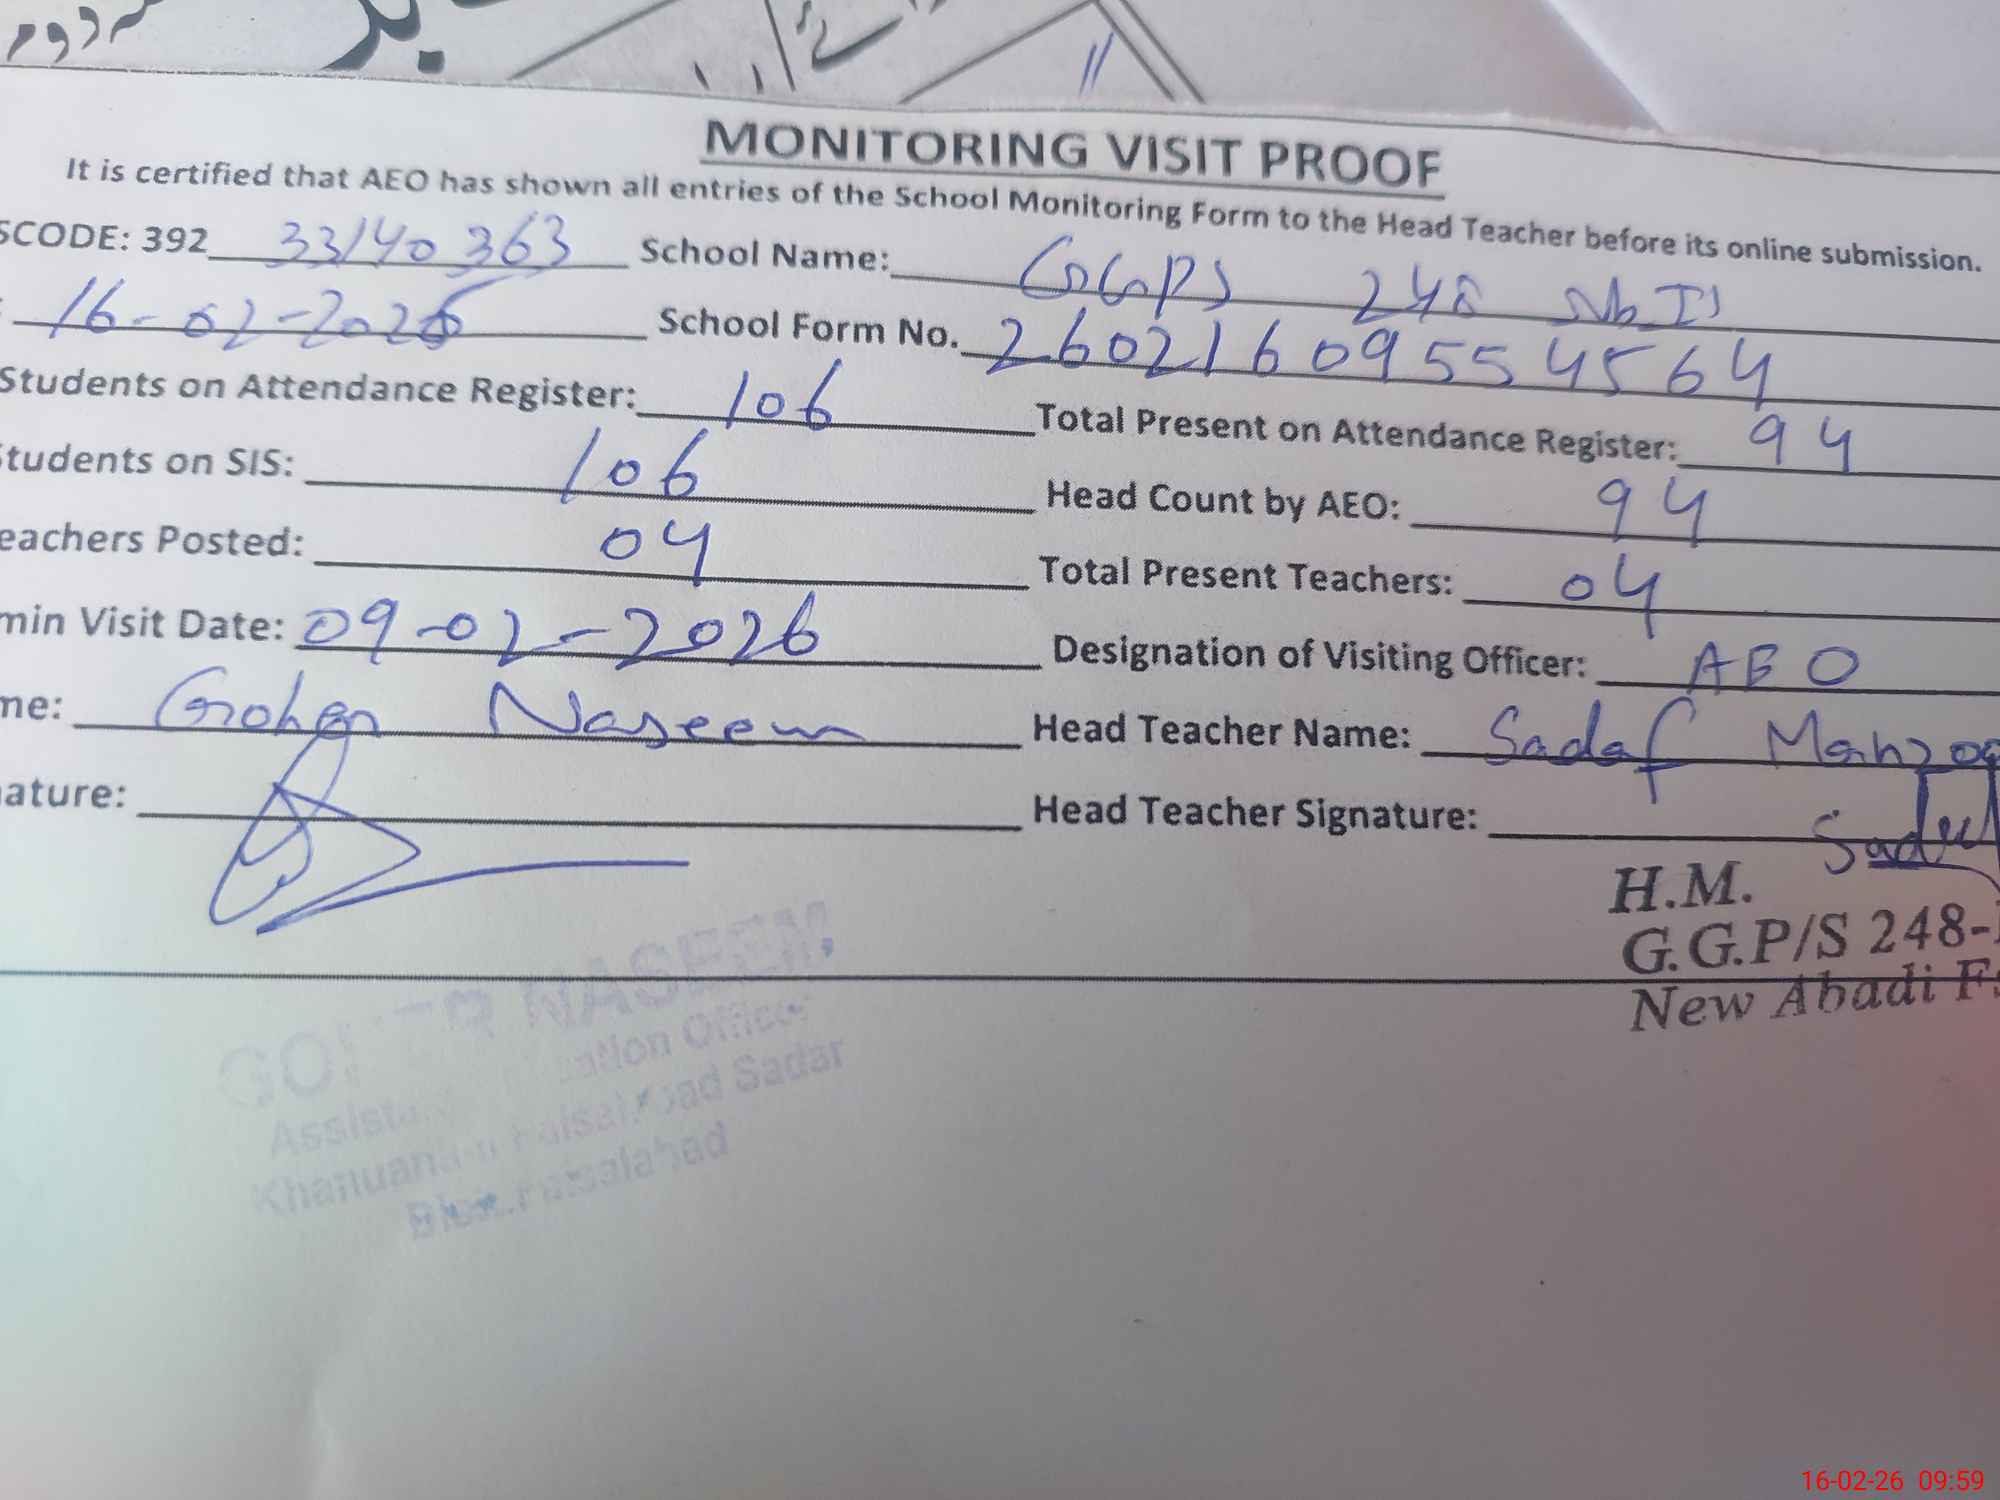 MONITORING VISIT PROOF
It is certified that AEO has shown all entries of the School Monitoring Form to the Head Teacher before its online submission.
SCODE: 392 33140363 School Name: GGPS 248
16-02-2026 School Form No. 260216095554564
Students on Attendance Register: 106 Total Present on Attendance Register: 94
tudents on SIS: 106 Head Count by AEO: 94
eachers Posted: 04 Total Present Teachers: 04
min Visit Date: 09-02-2026 Designation of Visiting Officer: AEO
me: Goher Naseem Head Teacher Name: Sadaf Manzoo
ature: Head Teacher Signature:
H.M.
G.G.P/S 248-
New Abadi
NASEEM
Sadar
16-02-26 09:59